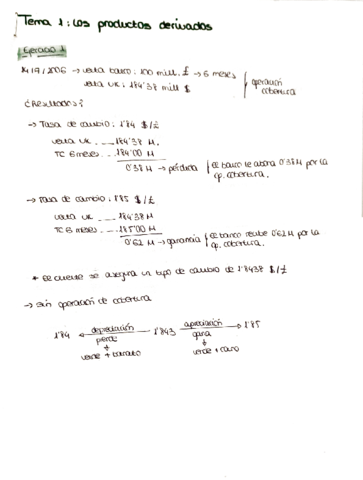 Tema 1: Los productos derivados
Ejercicio 1
14/7/2006 → venta banco: 100 mill. £ → 6 meses
venta UK: 184'38 mill $
operación cobertura
¿Resultados?
→ Tasa de cambio: 1'84 $/£
venta UK .... 184'38 M.
TC 6 meses .... 184'00 M
0'38 M → pérdida
el banco le abona 0'38 M por la op. cobertura.
→ Tasa de cambio: 1'85 $/£
venta UK .... 184'38 M
TC 6 meses .... 185'00 M
0'62 M → ganancia
el banco recibe 0'62 M por la op. cobertura.
* el cliente se asegura un tipo de cambio de 1'8438 $/£
→ Sin operación de cobertura
1'84 ← depreciación 1'843 apreciación → 1'85
pierde gana
vende + barato vende + caro